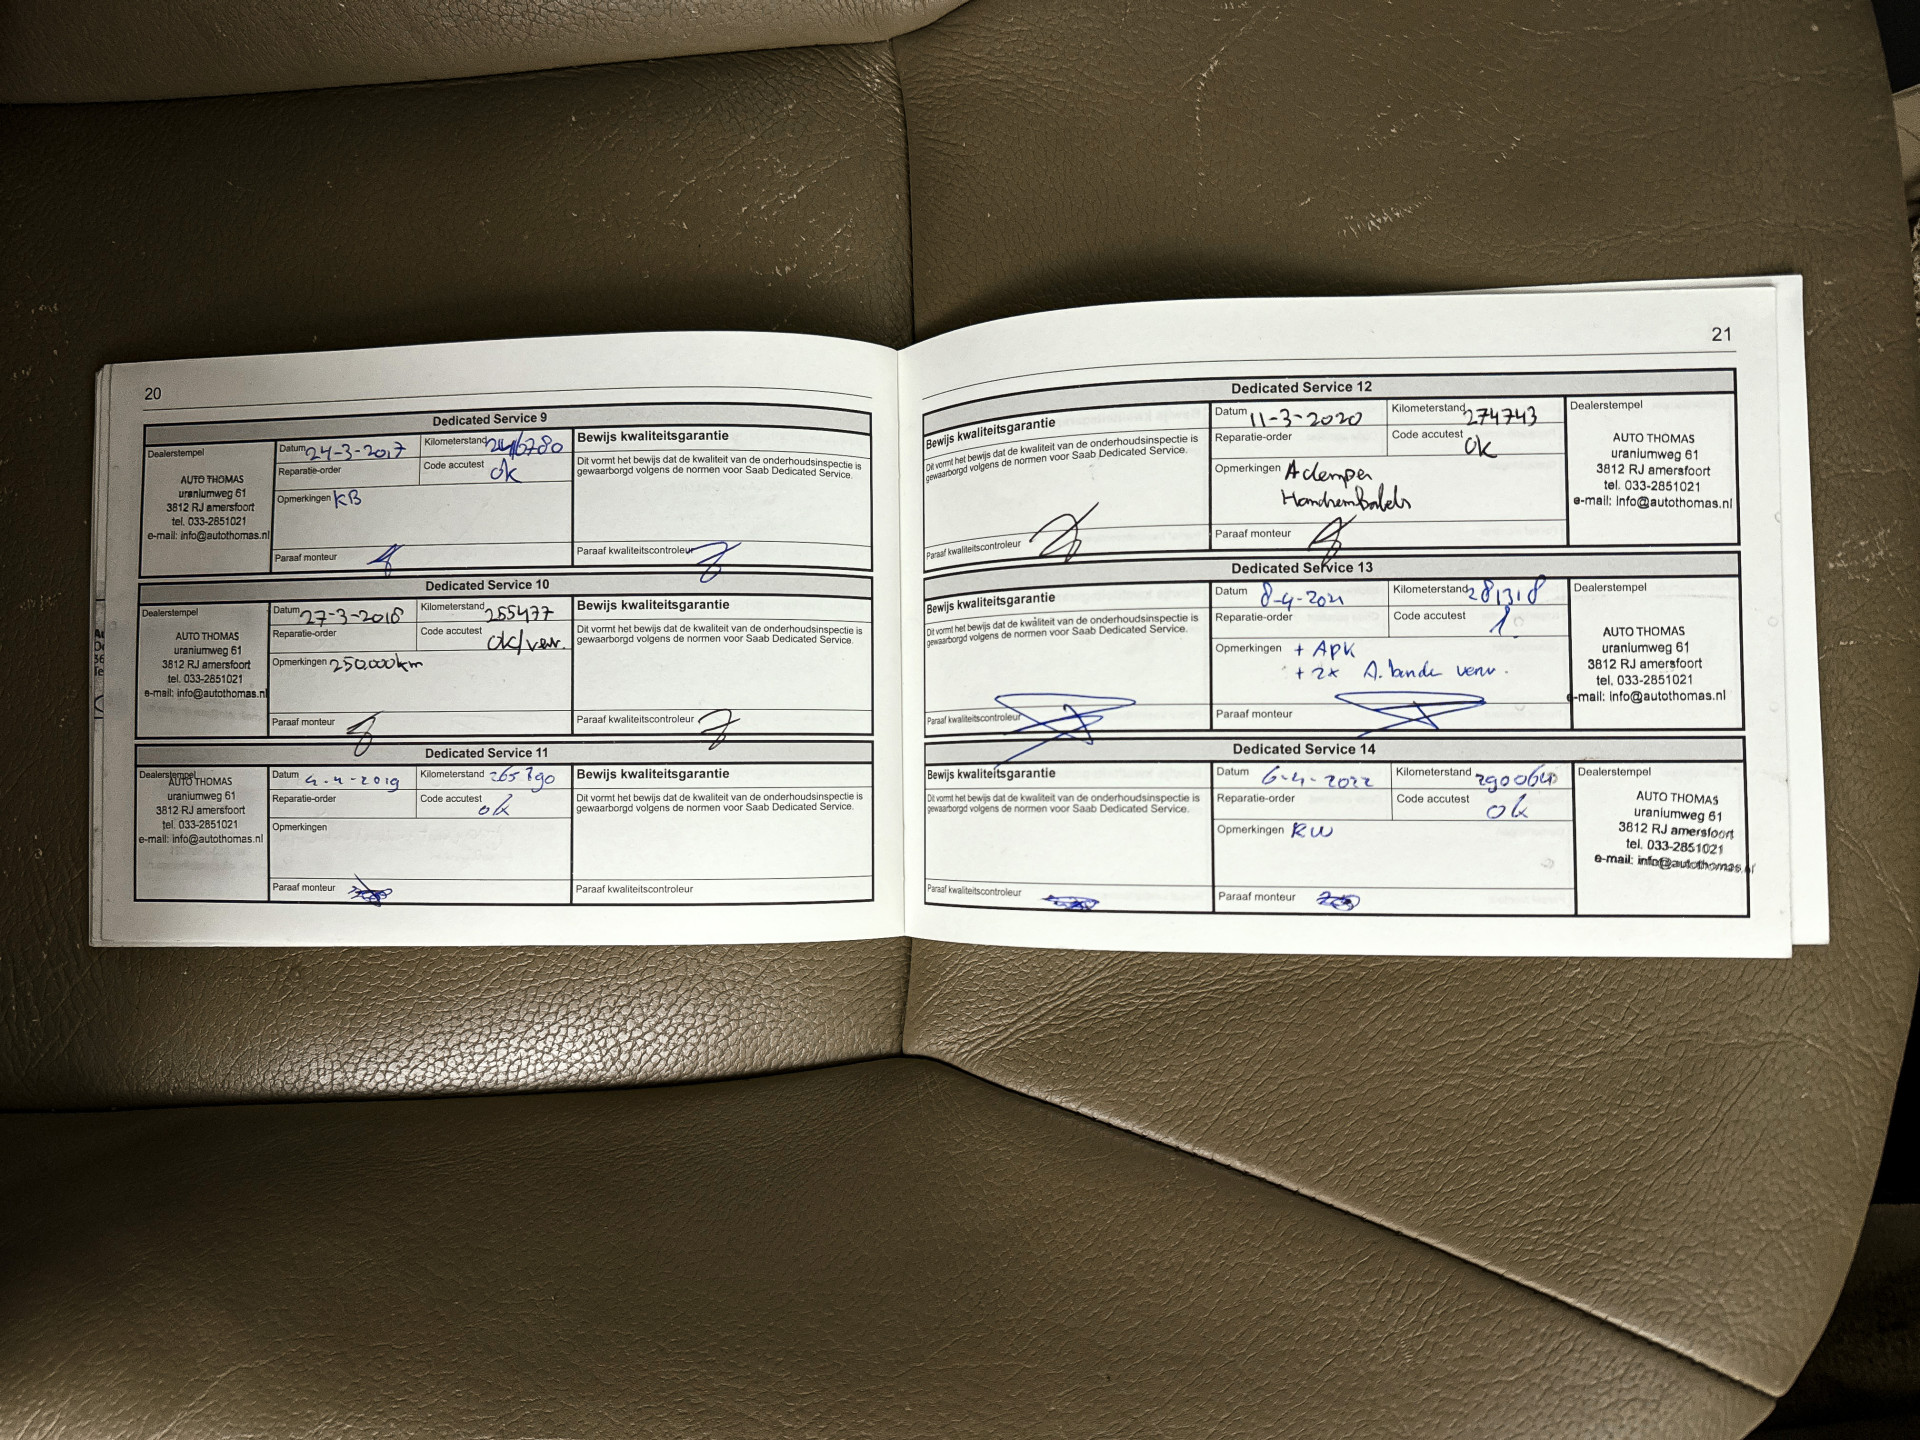 20
Dedicated Service 9
Dealerstempel
AUTO THOMAS
uraniumweg 61
3812 RJ amersfoort
tel. 033-2851021
e-mail: info@autothomas.nl
Datum 24-3-2017
Kilometerstand 246780
Reparatie-order
Code accutest ok
Opmerkingen KB
Paraaf monteur
Bewijs kwaliteitsgarantie
Dit vormt het bewijs dat de kwaliteit van de onderhoudsinspectie is
gewaarborgd volgens de normen voor Saab Dedicated Service.
Paraaf kwaliteitscontroleur
Dedicated Service 10
Dealerstempel
AUTO THOMAS
uraniumweg 61
3812 RJ amersfoort
tel. 033-2851021
e-mail: info@autothomas.nl
Datum 27-3-2018
Kilometerstand 255477
Reparatie-order
Code accutest ok/verv.
Opmerkingen 250.000km
Paraaf monteur
Bewijs kwaliteitsgarantie
Dit vormt het bewijs dat de kwaliteit van de onderhoudsinspectie is
gewaarborgd volgens de normen voor Saab Dedicated Service.
Paraaf kwaliteitscontroleur
Dedicated Service 11
Dealerstempel
AUTO THOMAS
uraniumweg 61
3812 RJ amersfoort
tel. 033-2851021
e-mail: info@autothomas.nl
Datum 4-4-2019
Kilometerstand
Reparatie-order
Code accutest ok
Opmerkingen
Paraaf monteur
Bewijs kwaliteitsgarantie
Dit vormt het bewijs dat de kwaliteit van de onderhoudsinspectie is
gewaarborgd volgens de normen voor Saab Dedicated Service.
Paraaf kwaliteitscontroleur
21
Dedicated Service 12
Bewijs kwaliteitsgarantie
Dit vormt het bewijs dat de kwaliteit van de onderhoudsinspectie is
gewaarborgd volgens de normen voor Saab Dedicated Service.
Paraaf kwaliteitscontroleur
Datum 11-3-2020
Kilometerstand 274743
Reparatie-order
Code accutest ok
Opmerkingen A demper
Handremkabels
Paraaf monteur
Dealerstempel
AUTO THOMAS
uraniumweg 61
3812 RJ amersfoort
tel. 033-2851021
e-mail: info@autothomas.nl
Dedicated Service 13
Bewijs kwaliteitsgarantie
Dit vormt het bewijs dat de kwaliteit van de onderhoudsinspectie is
gewaarborgd volgens de normen voor Saab Dedicated Service.
Paraaf kwaliteitscontroleur
Datum 8-4-2021
Kilometerstand 281318
Reparatie-order
Code accutest 1.
Opmerkingen + APK
+ 2x A. banden verv.
Paraaf monteur
Dealerstempel
AUTO THOMAS
uraniumweg 61
3812 RJ amersfoort
tel. 033-2851021
e-mail: info@autothomas.nl
Dedicated Service 14
Bewijs kwaliteitsgarantie
Dit vormt het bewijs dat de kwaliteit van de onderhoudsinspectie is
gewaarborgd volgens de normen voor Saab Dedicated Service.
Paraaf kwaliteitscontroleur
Datum 6-4-2022
Kilometerstand
Reparatie-order
Code accutest ok
Opmerkingen RW
Paraaf monteur
Dealerstempel
AUTO THOMAS
uraniumweg 61
3812 RJ amersfoort
tel. 033-2851021
e-mail: info@autothomas.nl